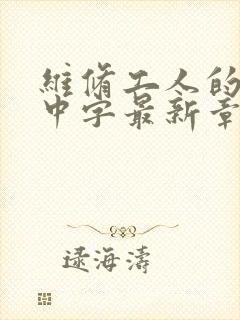 維脩工人的
中字最新章
逯海濤